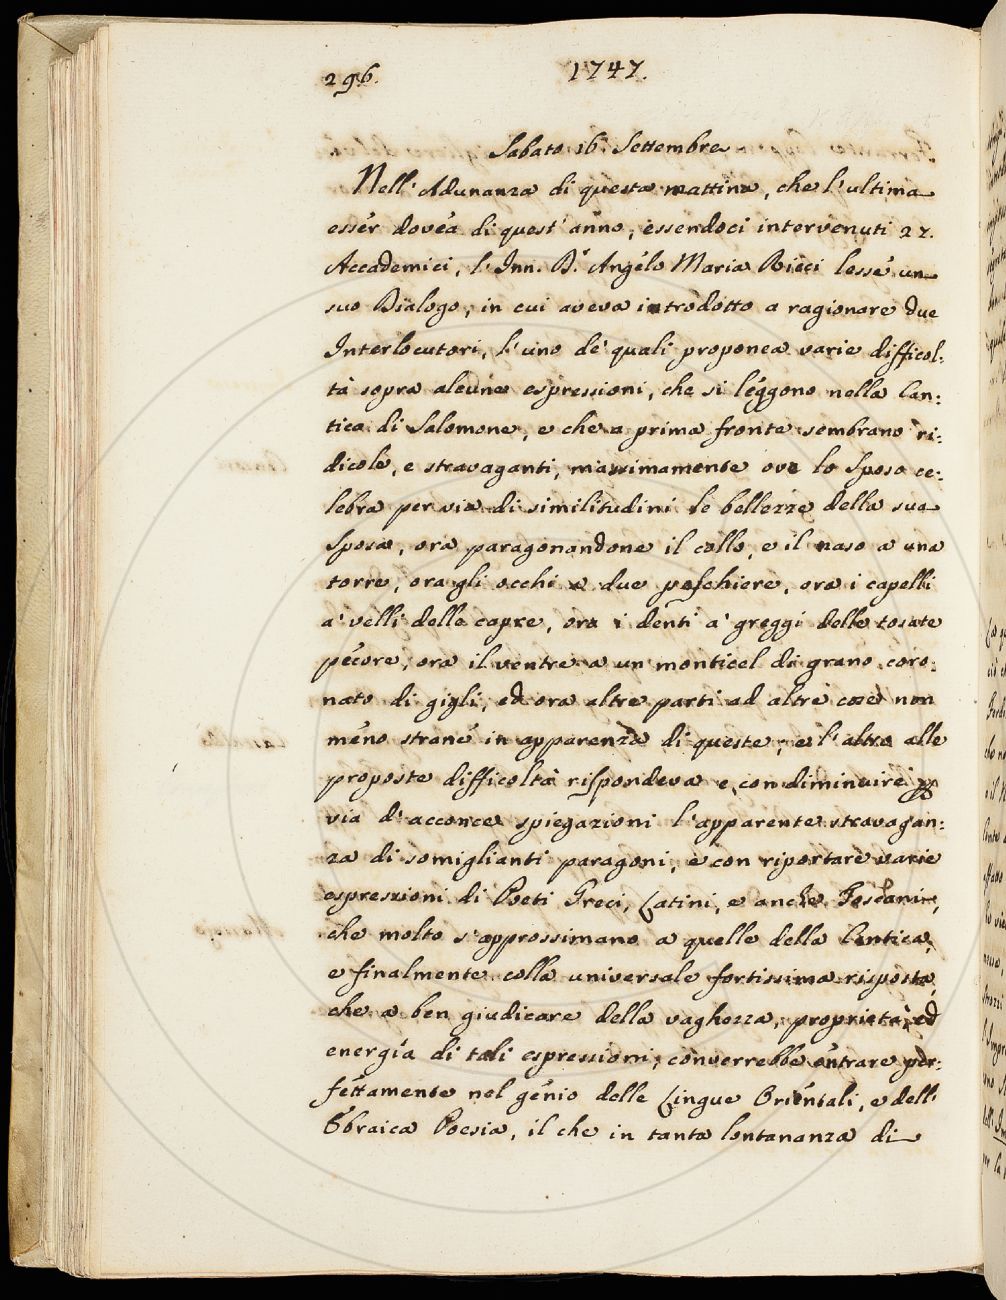 296.
1747.
Sabato 16. Settembre
Nell'Adunanza di questa mattina, che l'ultima
esser dovea di quest'anno, essendoci intervenuti 27.
Accademici, l'Inn. D.r Angelo Maria Ricci lesse un
suo Dialogo, in cui aveva introdotto a ragionare due
Interlocutori, l'uno de' quali proponea varie difficol:
tà sopra alcune espressioni, che si leggono nella Can:
tica di Salomone, e che a prima fronte sembrano ri:
dicole, e stravaganti, massimamente ove lo Sposo ce:
lebra per via di similitudini le bellezze della sua
Sposa, ora paragonandone il collo, e il naso a una
torre, ora gli occhi a due peschiere, ora i capelli
a' velli delle capre, ora i denti a' greggi delle tosate
pecore, ora il ventre a un monticel di grano coro:
nato di gigli, ed ora altre parti ad altre cose non
meno strane in apparenza di queste; e l'altro alle
proposte difficoltà rispondeva e con diminuire p
via d'acconce spiegazioni l'apparente stravagan:
za di somiglianti paragoni, e con riportare varie
espressioni di Poeti Greci, Latini, e anche Toscani,
che molto s'approssimano a quelle della Cantica,
e finalmente colla universale fortissima risposta,
che a ben giudicare della vaghezza, proprietà, ed
energía di tali espressioni, converrebbe entrare per:
fettamente nel genio delle Lingue Orientali, e dell'
Ebraica Poesia, il che in tanta lontananza di